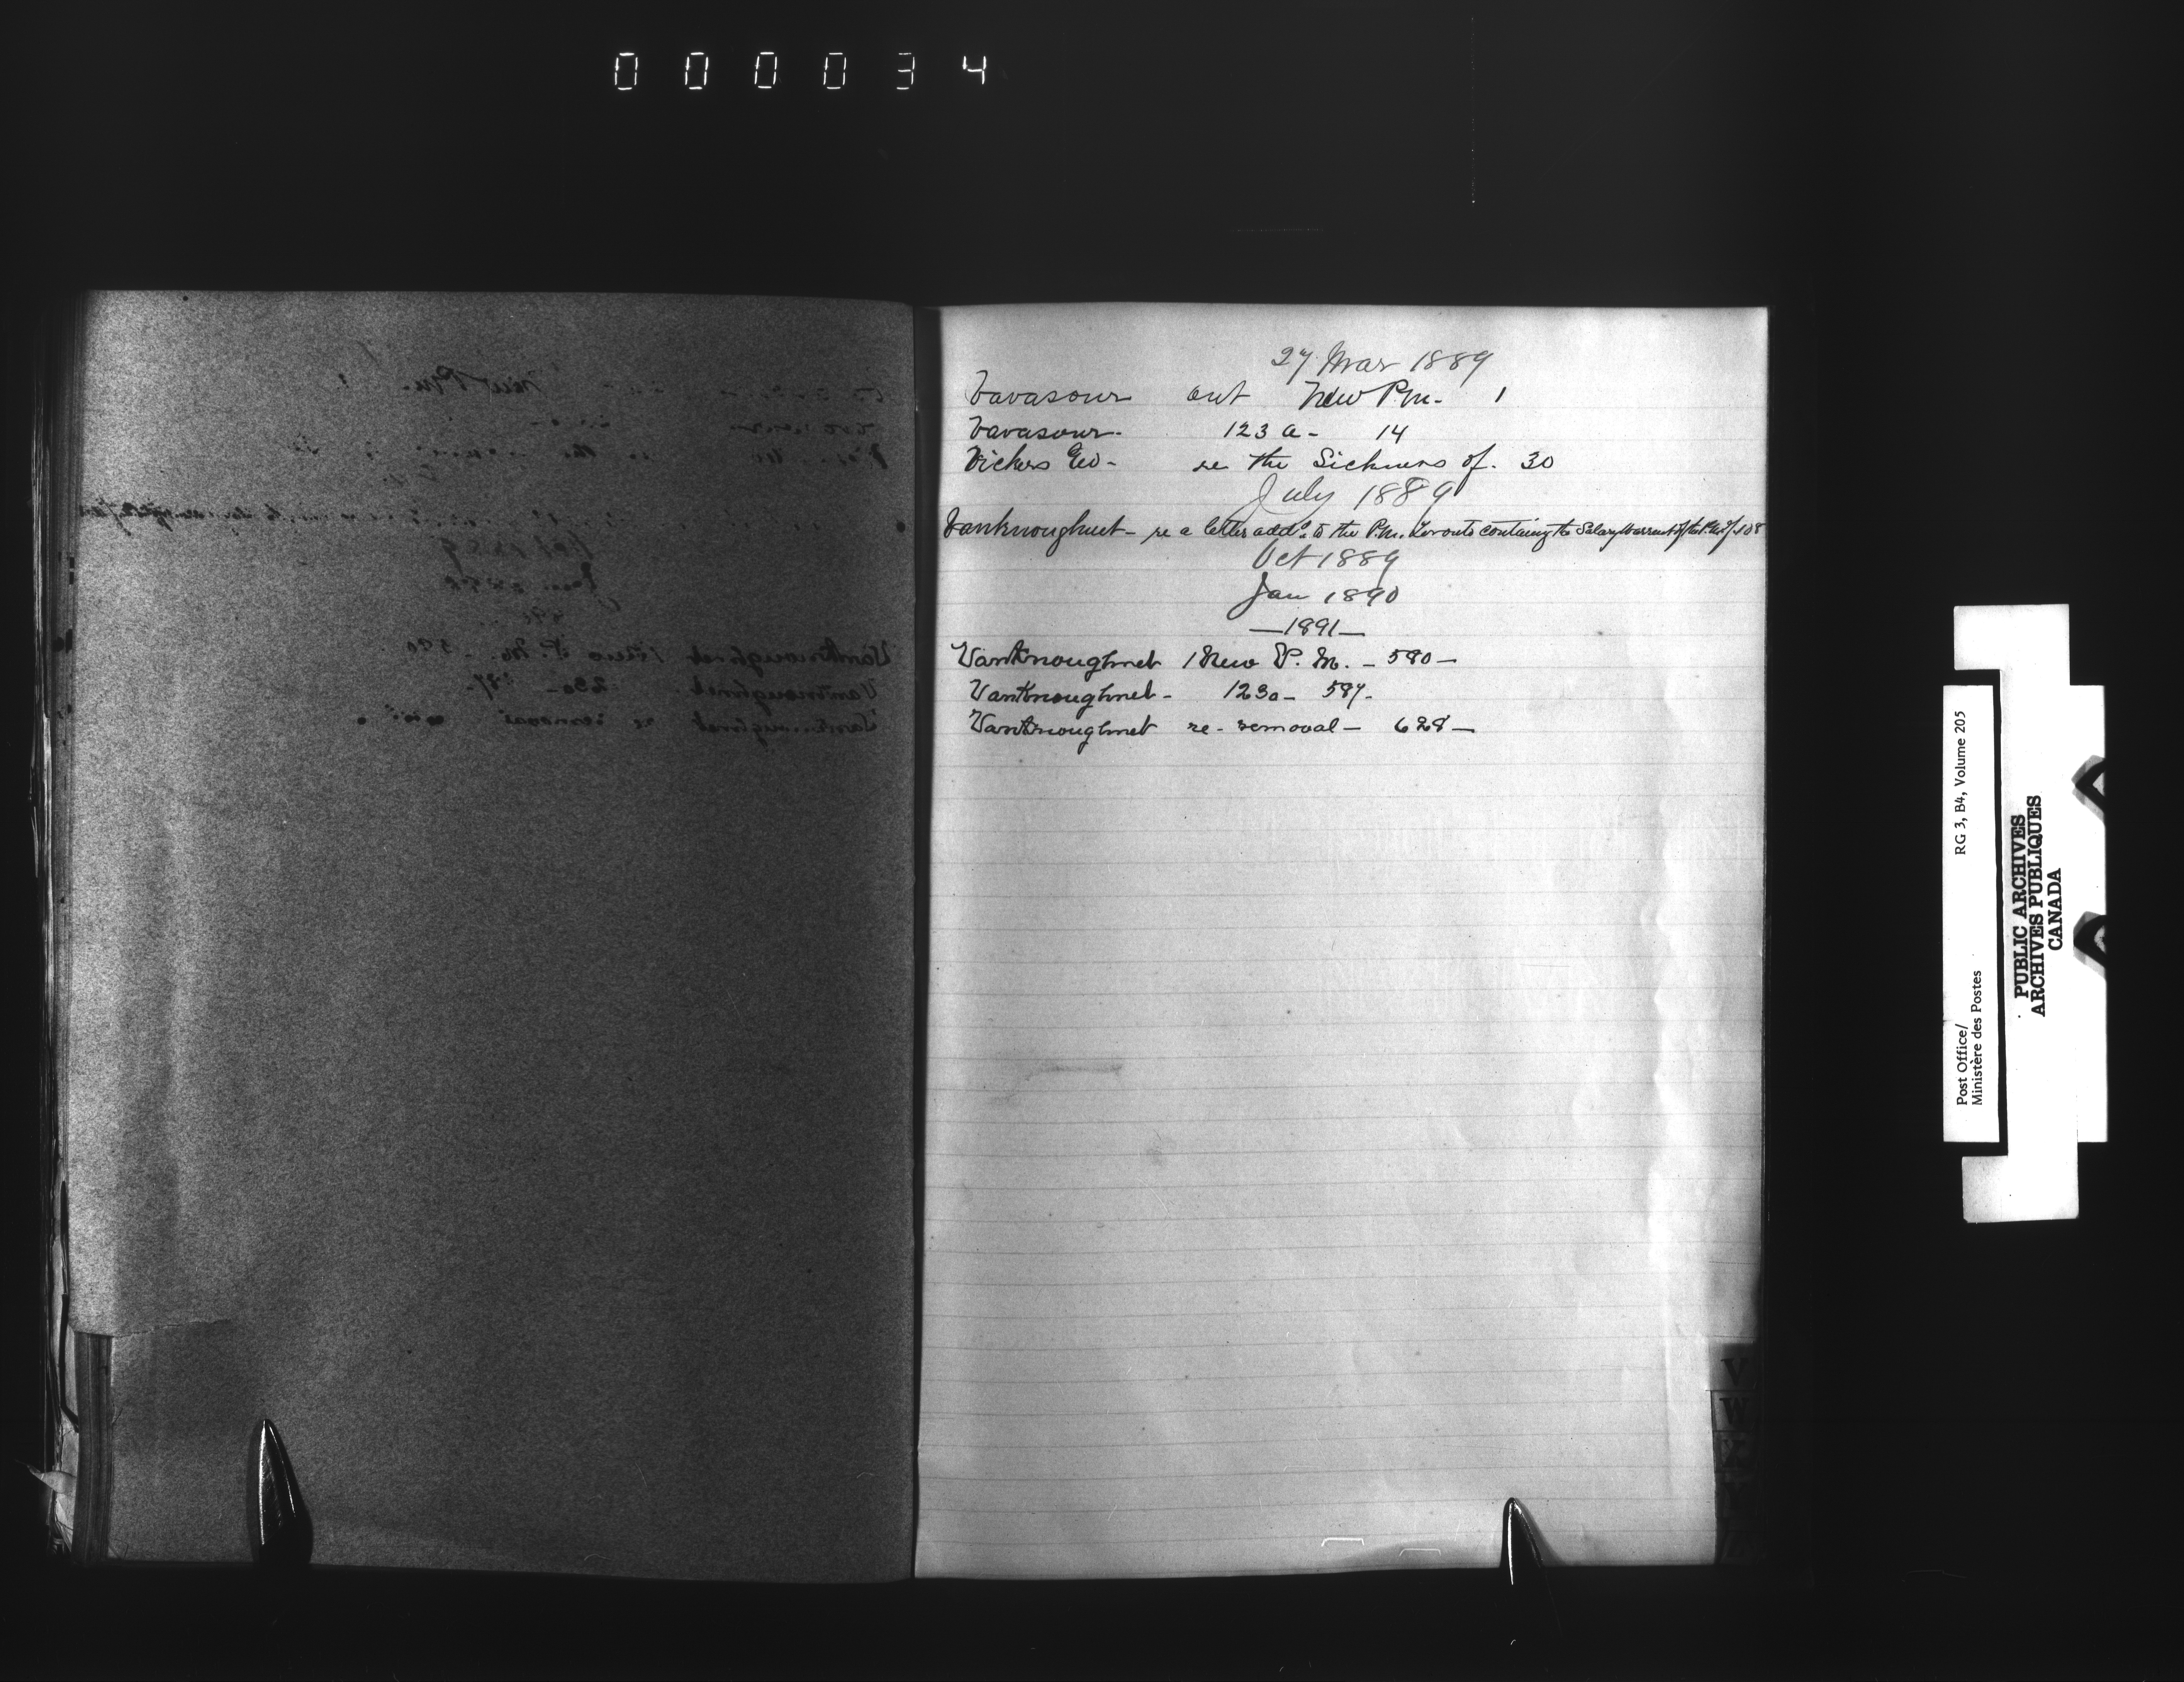 000034
27 Mar 1889
Vavasour ont New P.M. 1
Vavasour. 123 a - 14
Vickers Geo - re the Sickness of. 30
July 1889
Vanknoughnet - re a letter addd. to the P.M. Toronto containing the Salary Warrant of the P.M. of 508
Oct 1889
Jan 1890
— 1891 —
VanKnoughnet New P. M. - 580 -
VanKnoughnet - 123a - 587 -
VanKnoughnet re - removal - 628 -
V
W
Post Office/
Ministère des Postes
RG 3, B4, Volume 205
PUBLIC ARCHIVES
ARCHIVES PUBLIQUES
CANADA